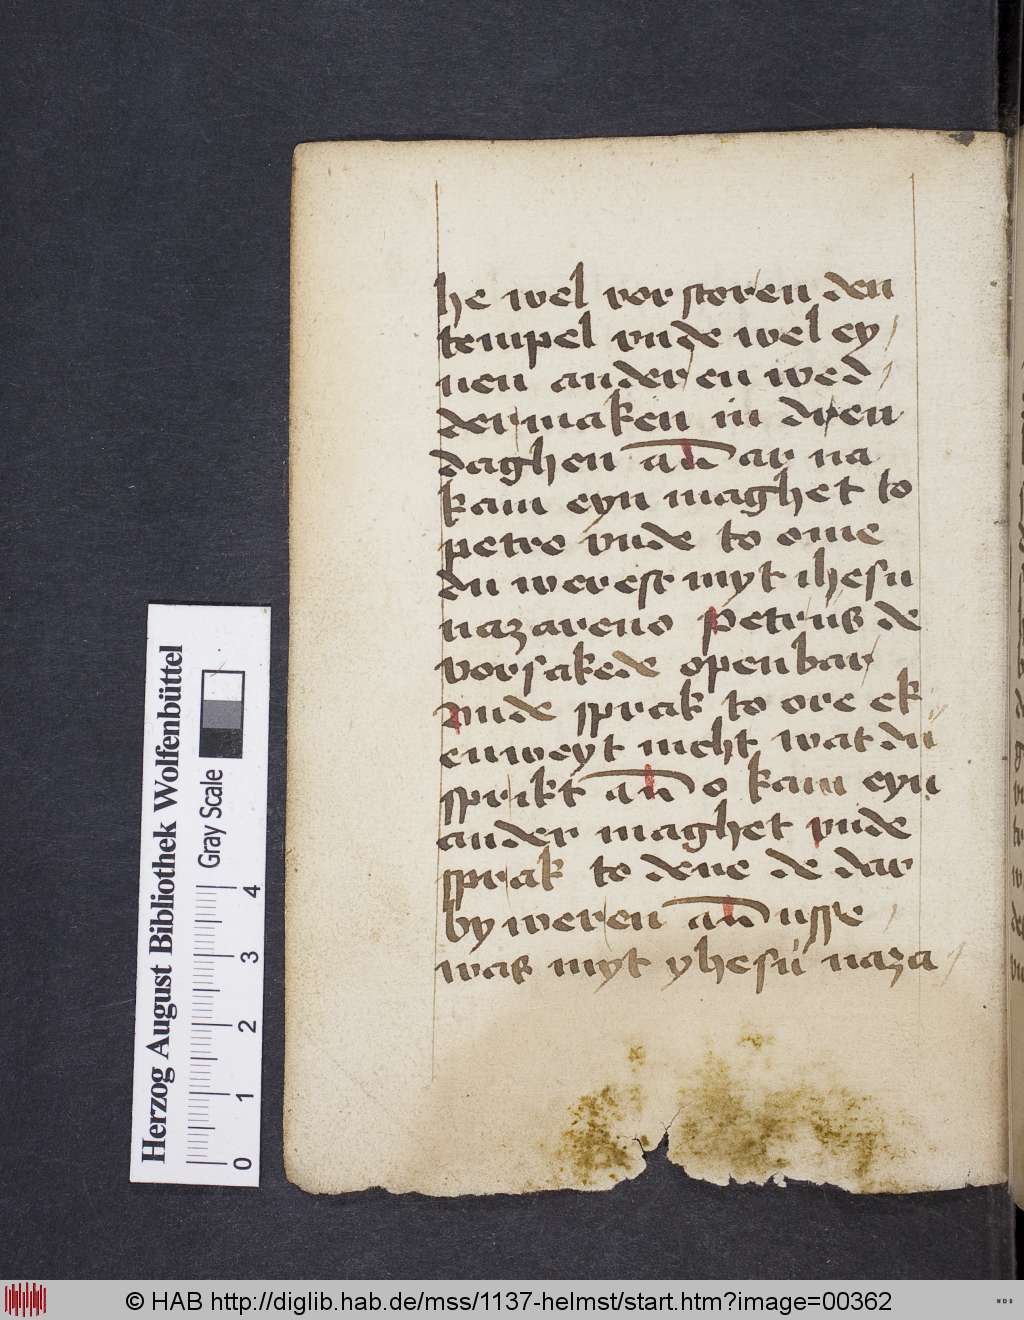 he wel vorstoren den
tempel vnde wel ey/
nen anderen wed/
dermaken in dren
daghen an̄ ar na
kam eyn maghet to
petre vnde to eme
du werest myt ihesu
nazareno petrus de
vorsakede openbar
vnde sprak to ore ek//
enweyt nicht wat du
sprikt an̄ o kam eyn
ander maghet vnde
sprak to dene de dar
by weren an̄ usse/
was myt yhesu naza/
Herzog August Bibliothek Wolfenbüttel
Gray Scale
0 1 2 3 4
© HAB http://diglib.hab.de/mss/1137-helmst/start.htm?image=00362